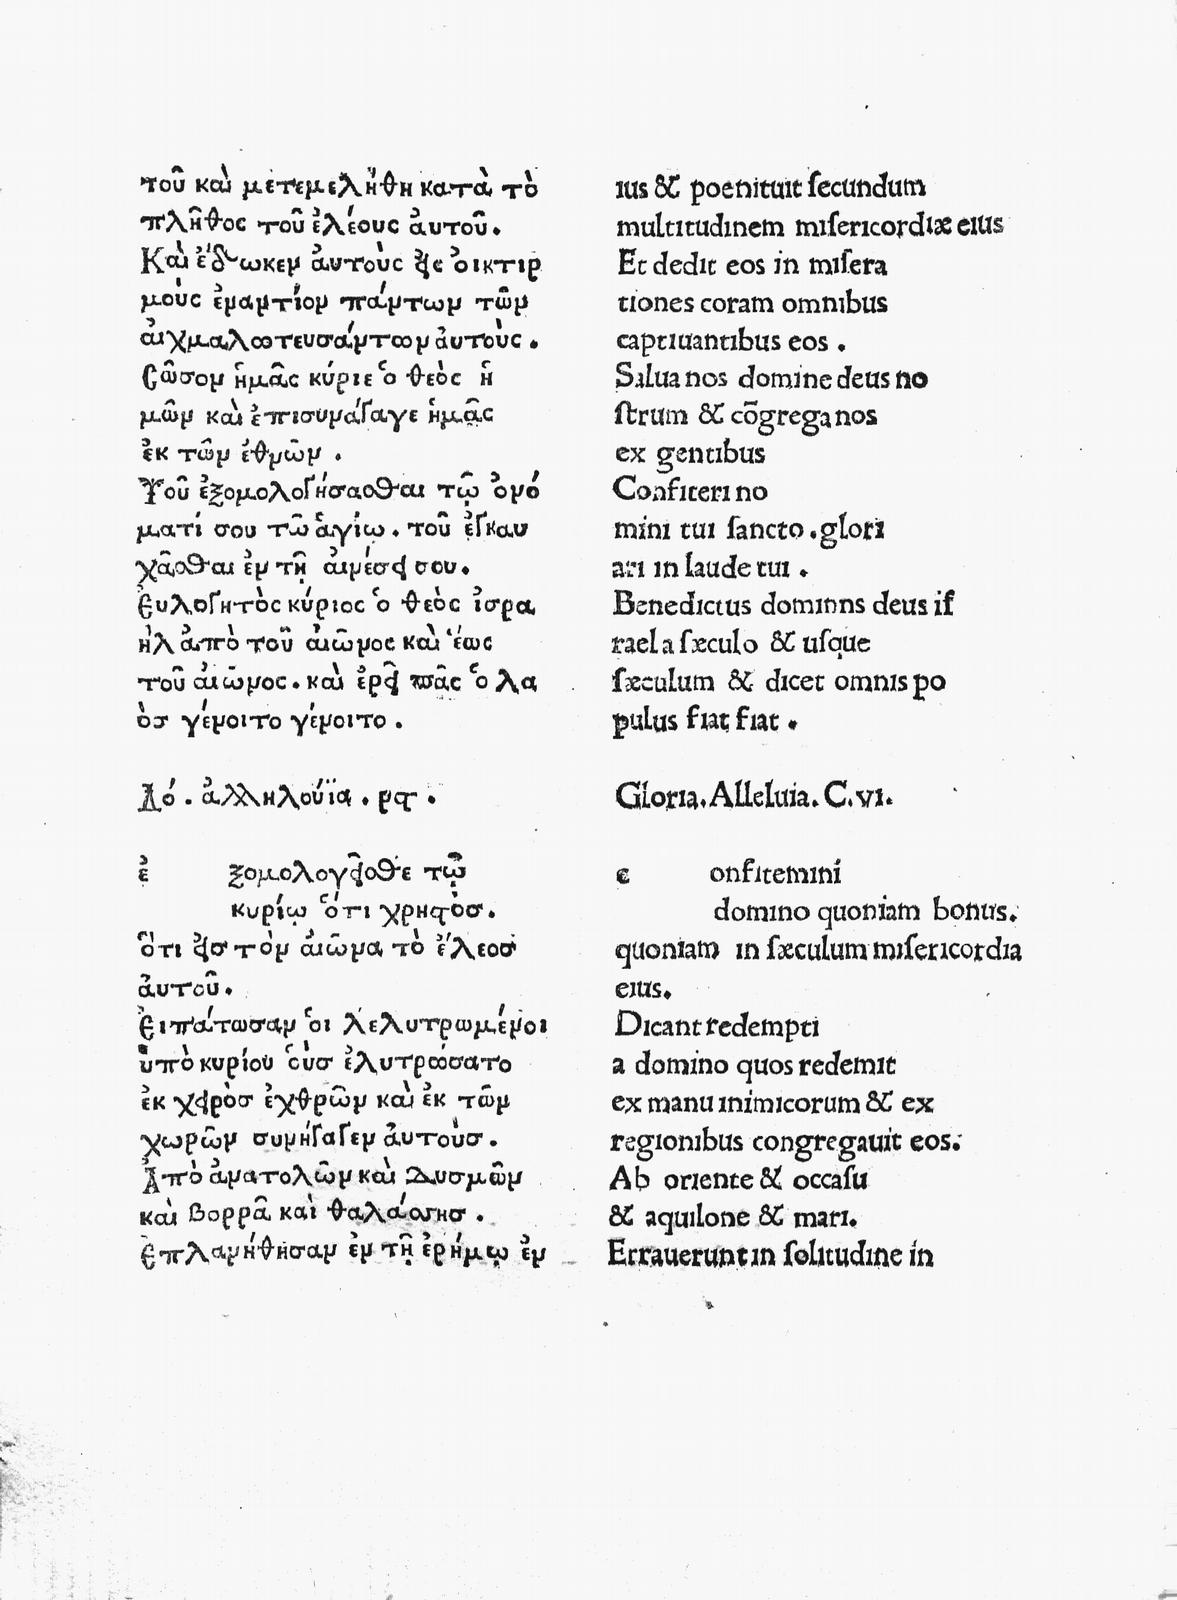 του̃ καὶ μετεμελήθη κατὰ τὸ
πλη̃θος του̃ ἐλέους ἀυτου̃.
Καὶ ἔδωκεν ἀυτοὺς εἰς ὀικτιρ
μοὺς ἐναντίον πάντων τω̃ν
ἀιχμαλωτευσάντων ἀυτοὺς.
Σω̃σον ἡμα̃ς κύριε ὁ θεὸς ἡ
μω̃ν καὶ ἐπισυνάγαγε ἡμα̃ς
ἐκ τω̃ν ἐθνω̃ν.
Του̃ ἐξομολογήσασθαι τῳ̃ ὀνό
ματί σου τω̃ ἁγίῳ. του̃ ἐγκαυ
χα̃σθαι ἐν τῃ̃ ἀινέσει σου.
Ἐυλογητὸς κύριος ὁ θεὸς ἰσρα
ὴλ ἀπὸ του̃ ἀιω̃νος καὶ ἕως
του̃ ἀιω̃νος. καὶ ἐρει̃ πα̃ς ὁ λα
ὸσ γένοιτο γένοιτο.
Δό. ἀλληλούϊα. ρϛ.
ἐ ξομολογει̃σθε τῳ̃
κυρίῳ ὅτι χρηστὸσ.
ὅτι εἰσ τὸν ἀιω̃να τὸ ἔλεοσ
ἀυτου̃.
Ἐιπάτωσαν ὁι λελυτρωμένοι
ὑπὸ κυρίου ὁύσ ἐλυτρώσατο
ἐκ χειρὸσ ἐχθρω̃ν καὶ ἐκ τω̃ν
χωρω̃ν συνήγαγεν ἀυτούσ.
Ἀπὸ ἀνατολω̃ν καὶ Δυσμω̃ν
καὶ βορρα̃ καὶ θαλάσσησ.
Ἐπλανήθησαν ἐν τῃ̃ ἐρήμῳ ἐν
ius & poenituit ſecundum
multitudinem miſericordiæ eius
Et dedit eos in miſera
tiones coram omnibus
captiuantibus eos.
Salua nos domine deus no
ſtrum & cõgrega nos
ex gentibus
Confiteri no
mini tui ſancto. glori
ari in laude tui.
Benedictus dominns deus iſ
rael a ſæculo & uſque
ſæculum & dicet omnis po
pulus fiat fiat.
Gloria. Alleluia. C.vi.
c onfitemini
domino quoniam bonus.
quoniam in ſæculum miſericordia
eius.
Dicant redempti
a domino quos redemit
ex manu inimicorum & ex
regionibus congregauit eos.
Ab oriente & occaſu
& aquilone & mari.
Errauerunt in ſolitudine in